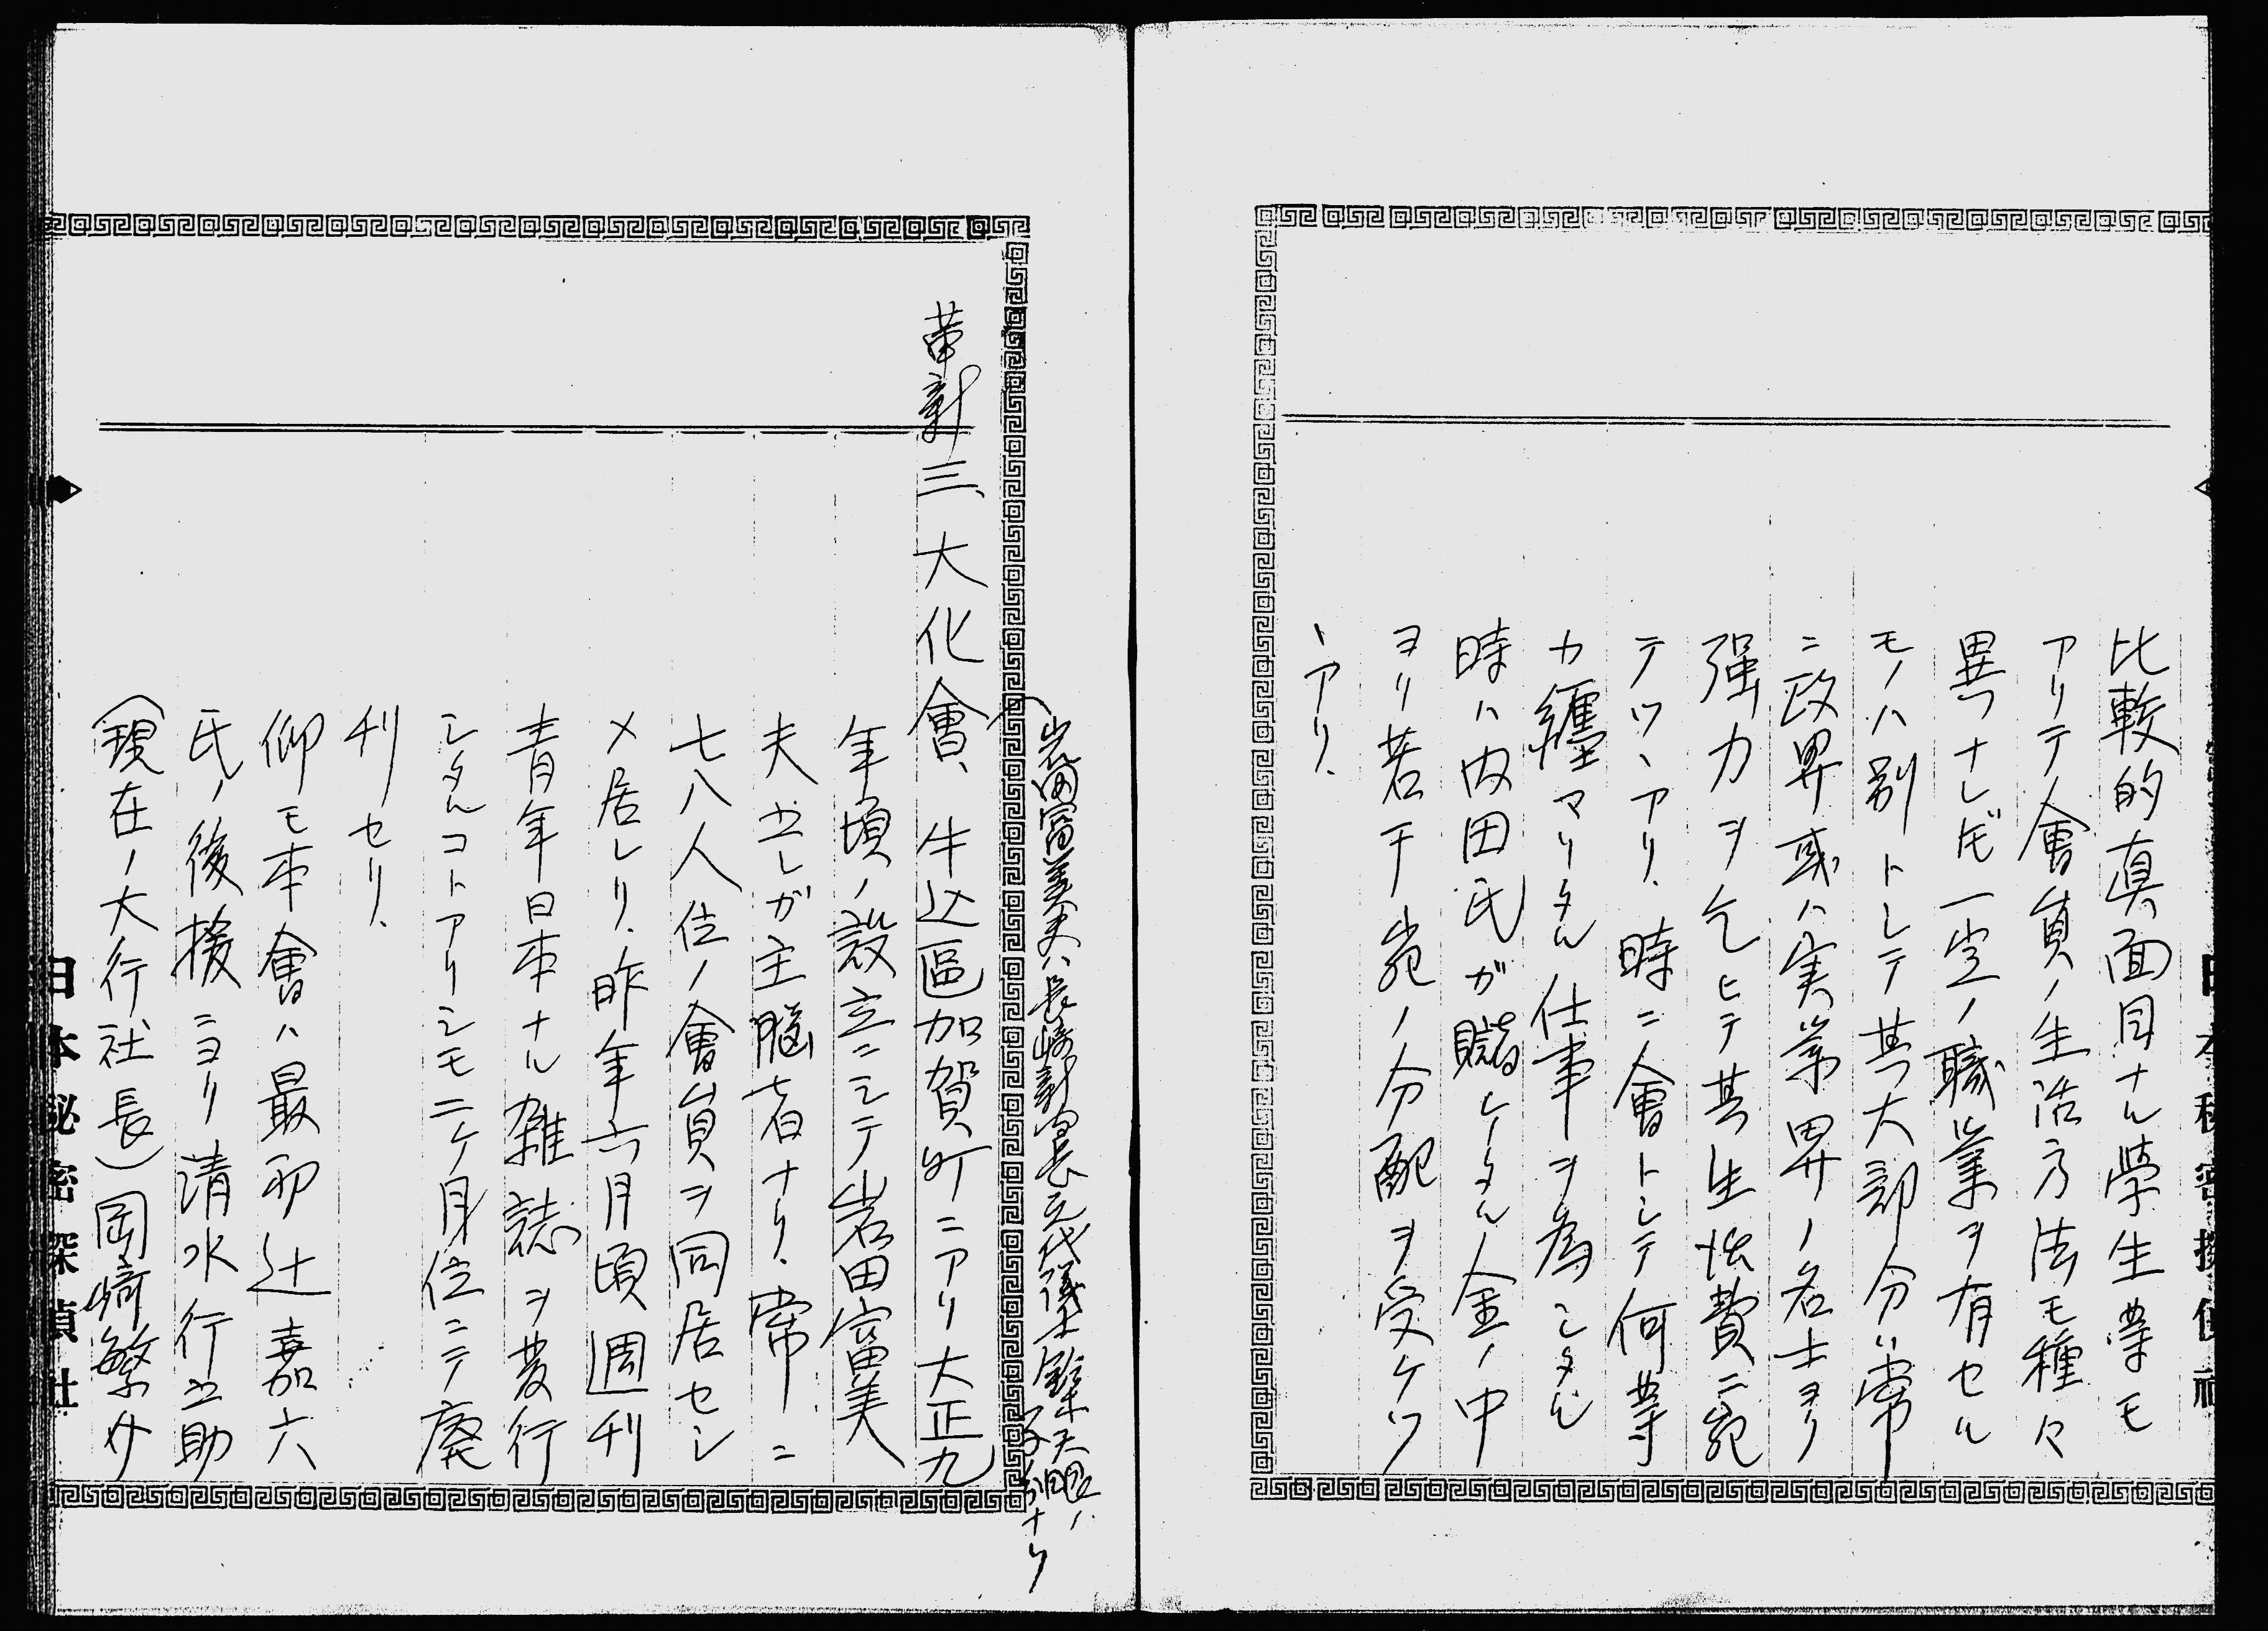 比較的真面目ナル学生等モ
アリテ會員ノ生活方法モ種々
異ツナレドモ一定ノ職業ヲ有セル
モノハ別トシテ其大部分ハ常
ニ政界或ハ実業界ノ名士ヨリ
強力ヲ乞ヒテ其生活費ニ宛
テツヽアリ、時ニ會トシテ何等
カ纏マリタル仕事ヲ為シタル
時ハ内田氏ガ贓シタル金ノ中
ヨリ若干宛ノ分配ヲ受ケツ
ヽアリ、
岩田富美夫ハ長崎
子分ナリ
革新
三、大化會、牛込區加賀町ニアリ大正九
年頃ノ設立ニシテ岩田富美
夫之レガ主脳者ナリ、常ニ
七八人位ノ會員ヲ同居セシ
メ居レリ、昨年六月頃週刊
青年日本ナル雑誌ヲ発行
シタルコトアリシモ二ケ月位ニテ廃
刊セリ、
仰モ本會ハ最初辻嘉六
氏ノ後援ニヨリ清水行之助
(現在ノ大行社長)岡崎繁サ
日本秘密探偵社